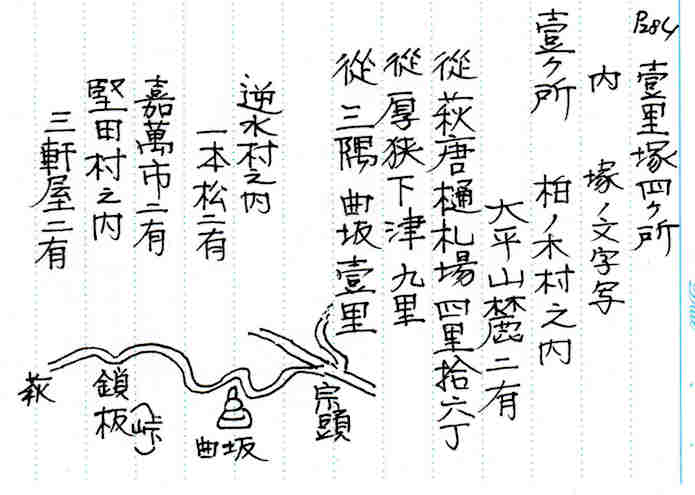 P284
壹里塚四ヶ所
内　塚ノ文字写
壹ヶ所　柏ノ木村之内
大平山麓ニ有
従萩唐樋札場四里拾六丁
従厚狭下津九里
従三隅曲坂壹里
逆水村之内
一本松ニ有
嘉萬市ニ有
堅田村之内
三軒屋ニ有
宗頭
曲坂
鎖板(峠)
萩